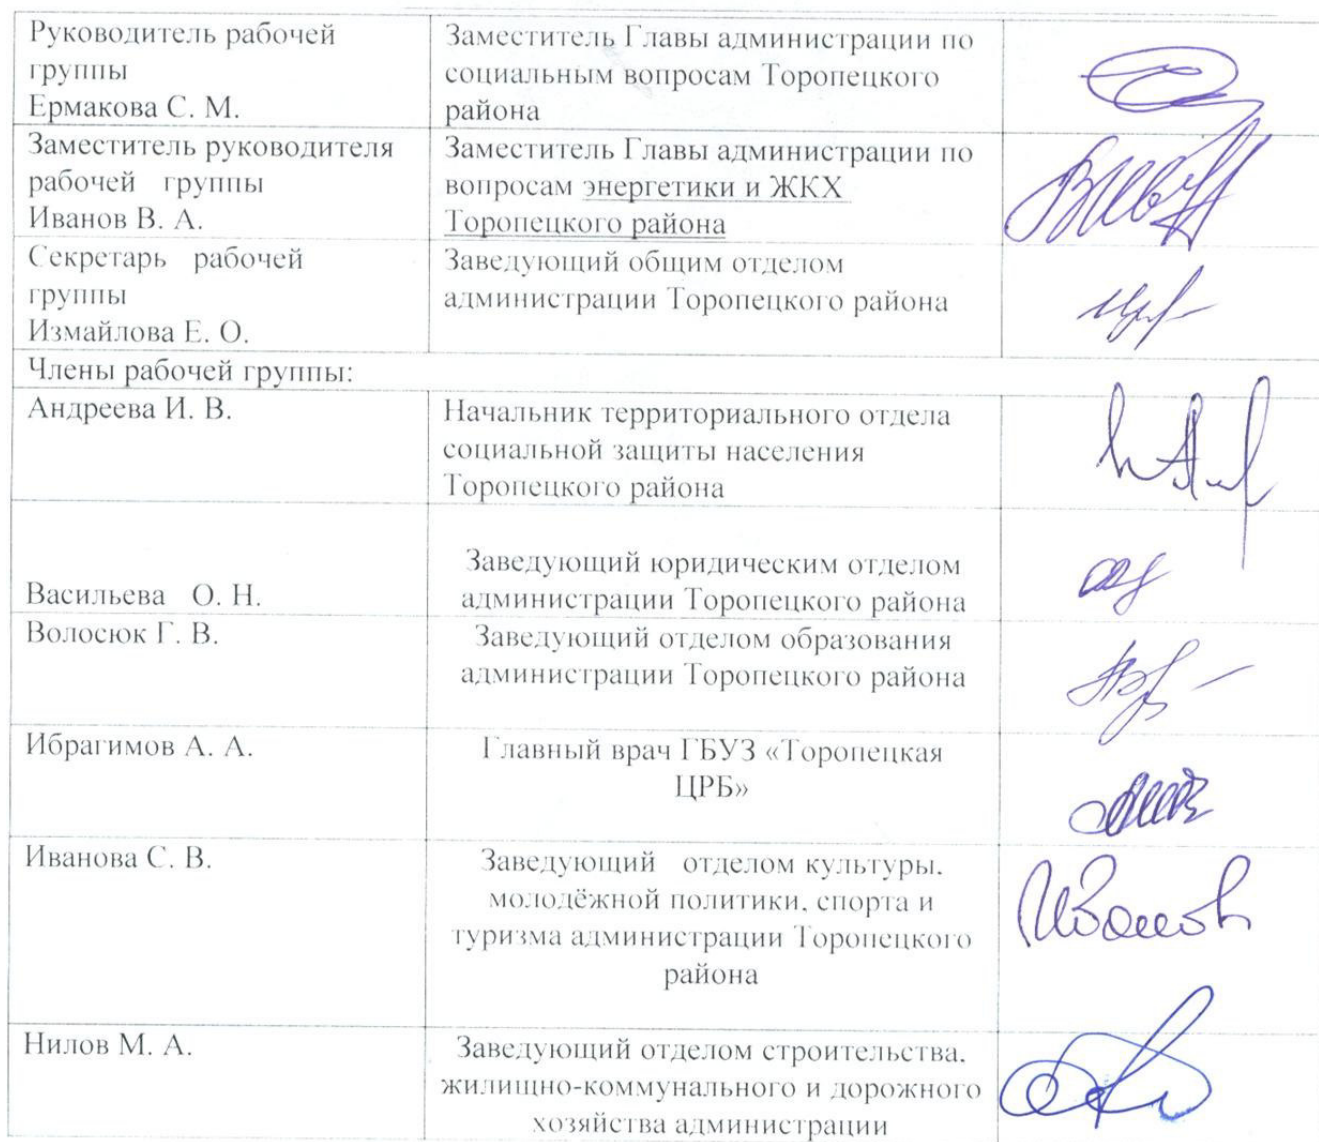 Руководитель рабочей
группы
Ермакова С. М.
Заместитель Главы администрации по
социальным вопросам Торопецкого
района
Заместитель руководителя
рабочей группы
Иванов В. А.
Заместитель Главы администрации по
вопросам энергетики и ЖКХ
Торопецкого района
Секретарь рабочей
группы
Измайлова Е. О.
Заведующий общим отделом
администрации Торопецкого района
Члены рабочей группы:
Андреева И. В.
Начальник территориального отдела
социальной защиты населения
Торопецкого района
Васильева О. Н.
Заведующий юридическим отделом
администрации Торопецкого района
Волосюк Г. В.
Заведующий отделом образования
администрации Торопецкого района
Ибрагимов А. А.
Главный врач ГБУЗ «Торопецкая
ЦРБ»
Иванова С. В.
Заведующий отделом культуры,
молодёжной политики, спорта и
туризма администрации Торопецкого
района
Нилов М. А.
Заведующий отделом строительства,
жилищно-коммунального и дорожного
хозяйства администрации